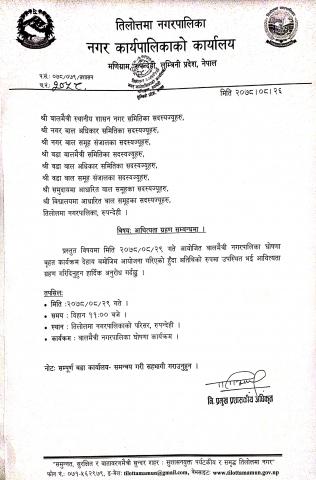 तिलोत्तमा नगरपालिका
नगर कार्यपालिकाको कार्यालय
मणिग्राम, रुपन्देही, लुम्बिनी प्रदेश, नेपाल
प.सं: ०७८/०७९/प्रशासन
च.नं. २०५८
मिति २०७८।०८।२६
श्री बालमैत्री स्थानीय शासन नगर समितिका सदस्यज्यूहरु,
श्री नगर बाल अधिकार समितिका सदस्यज्यूहरु,
श्री नगर बाल समूह संजालका सदस्यज्यूहरु,
श्री वडा बालमैत्री समितिका सदस्यज्यूहरु,
श्री वडा बाल समूह संजालका सदस्यज्यूहरु,
श्री समुदायमा आधारित बाल समूहका सदस्यज्यूहरु,
श्री विद्यालयमा आधारित बाल समूहका सदस्यज्यूहरु,
तिलोत्तमा नगरपालिका, रुपन्देही ।
विषय: आतिथ्यता ग्रहण सम्बन्धमा ।
प्रस्तुत विषयमा मिति २०७८/०८/२९ गते आयोजित बालमैत्री नगरपालिका घोषणा
बृहत कार्यक्रम देहाय बमोजिम आयोजना गरिएको हुँदा अतिथिको रुपमा उपस्थित भई आतिथ्यता
ग्रहण गरिदिनुहुन हार्दिक अनुरोध गर्दछु ।
तपसिल:
• मिति :२०७८/०८/२९ गते ।
• समय : विहान ११:०० बजे ।
• स्थान : तिलोत्तमा नगरपालिकाको परिसर, रुपन्देही ।
• कार्यक्रम : बालमैत्री नगरपालिका घोषणा कार्यक्रम ।
नोट: सम्पूर्ण वडा कार्यालय- समन्वय गरी सहभागी गराउनुहुन ।
नि. प्रमुख प्रशासकीय अधिकृत
"समुन्नत, सुरक्षित र वातावरणमैत्री सुन्दर शहर : सुशासनयुक्त पर्यटकीय र समृद्ध तिलोत्तमा नगर"
फोन नं.: ०७१-५६२१२९, इ-मेल: tilottamamun@gmail.com, वेबसाइट: www.tilottamamun.gov.np